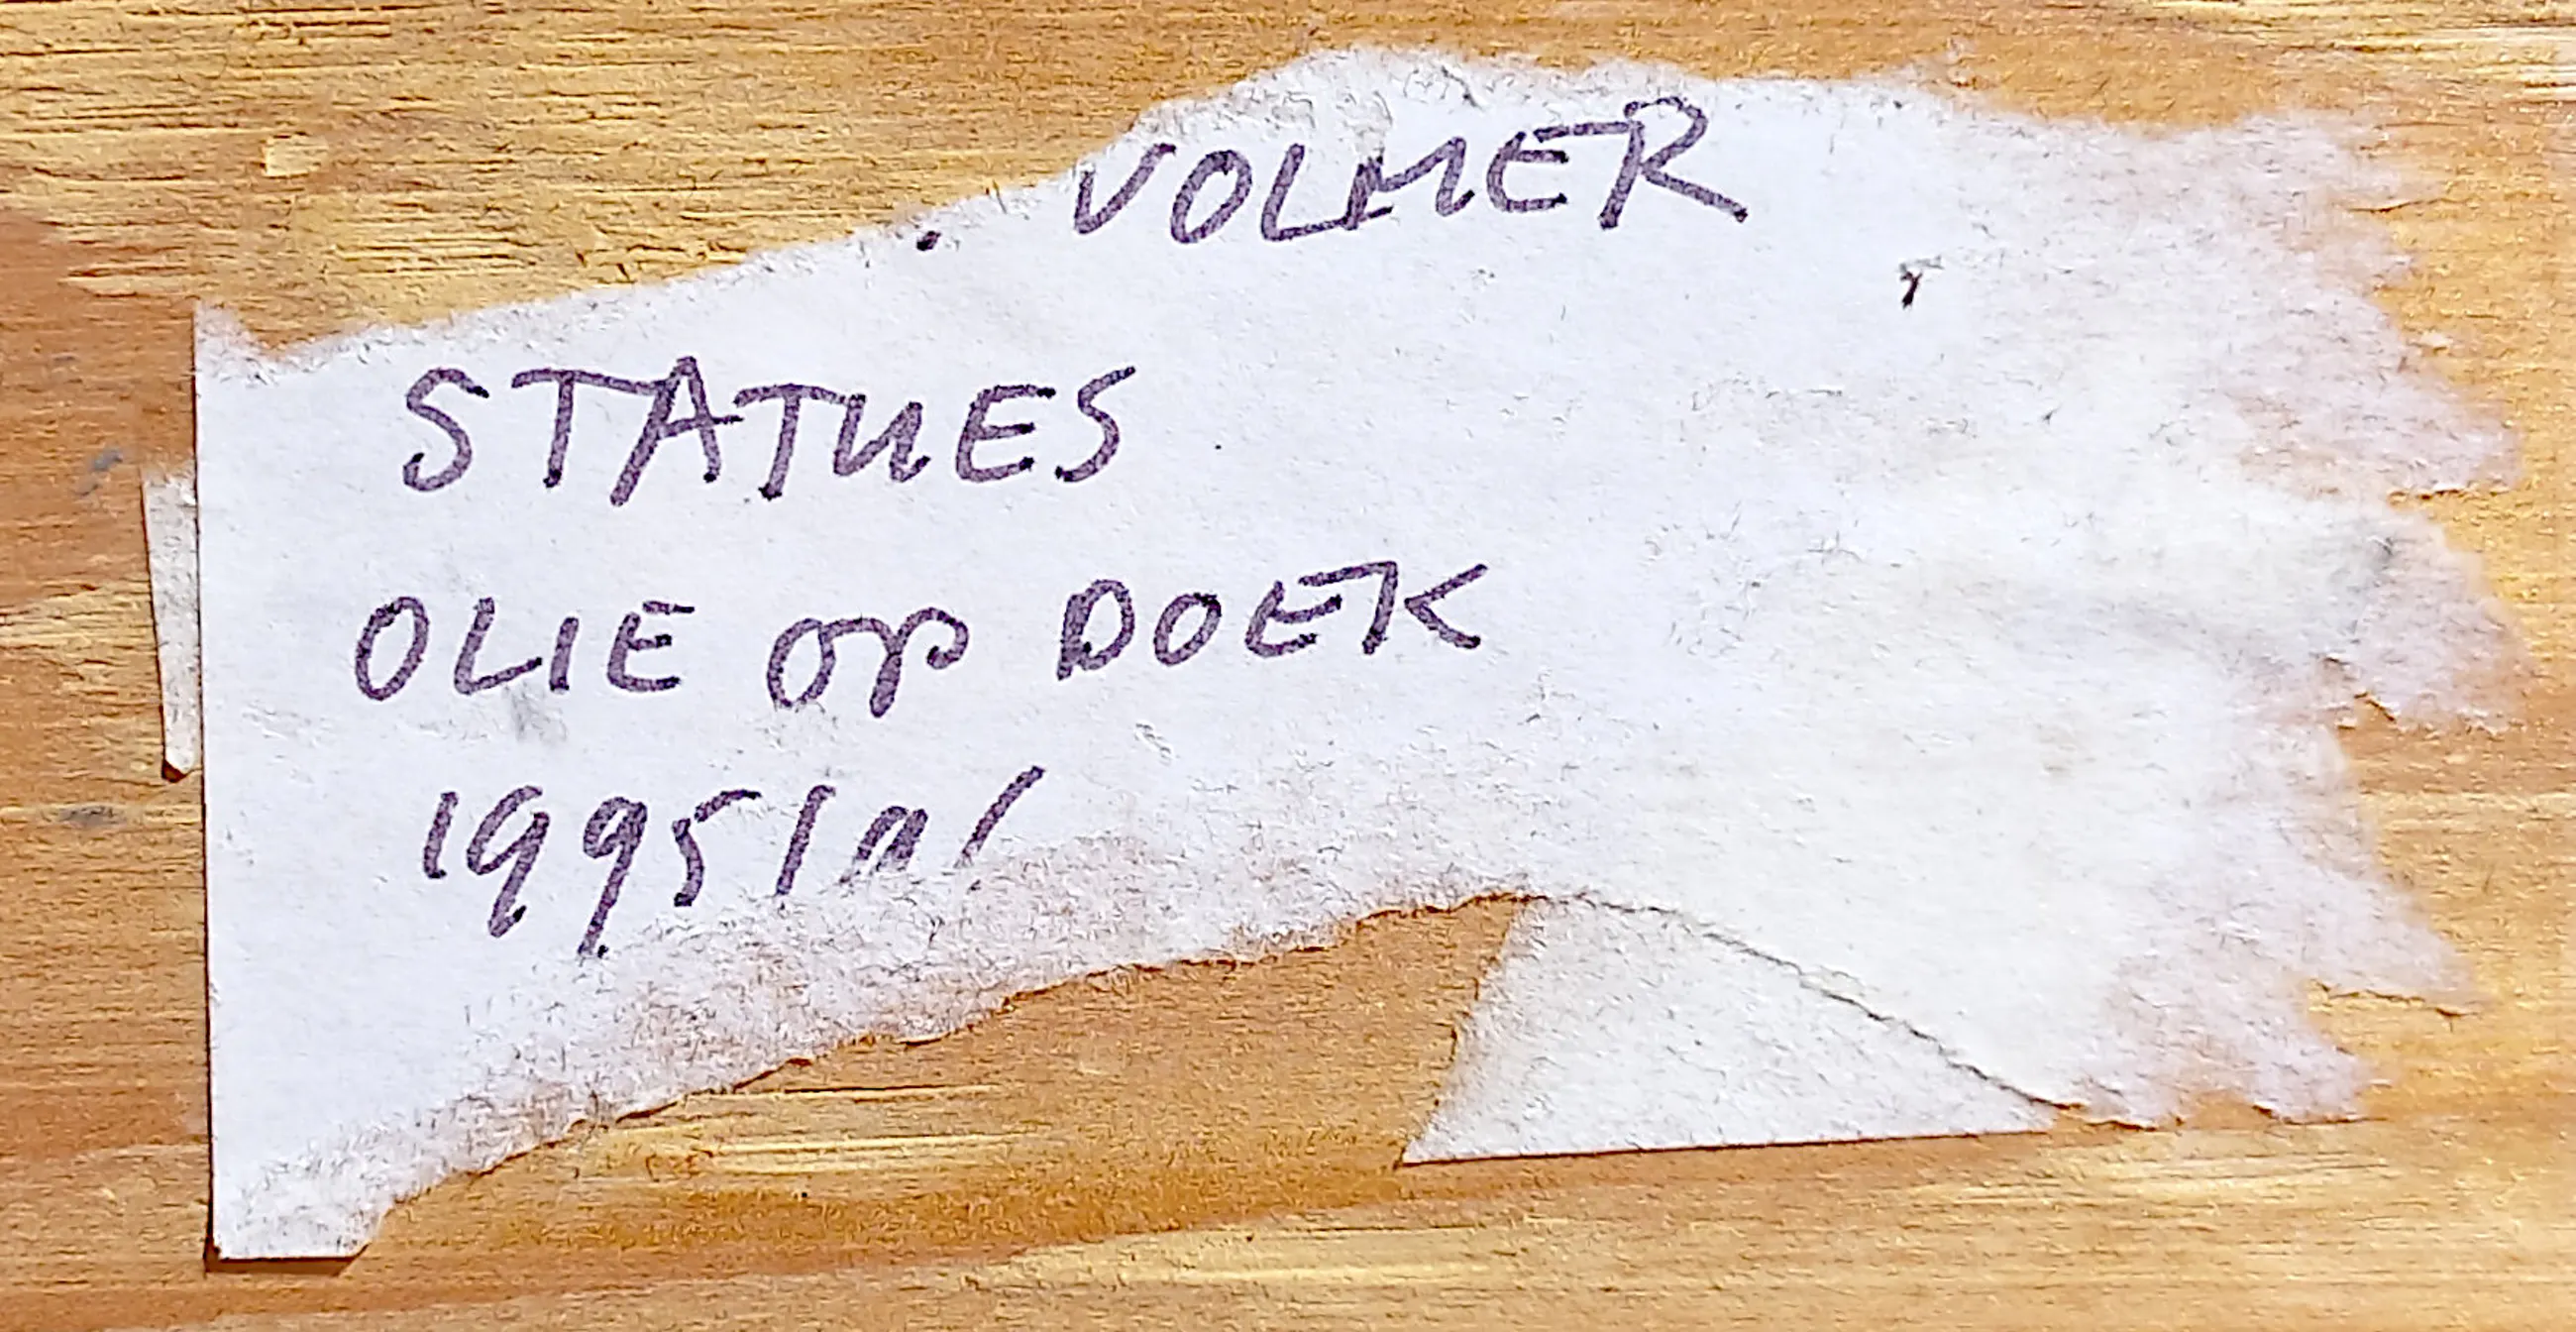 . VOLMER
STATUES
OLIE OP DOEK
1995/